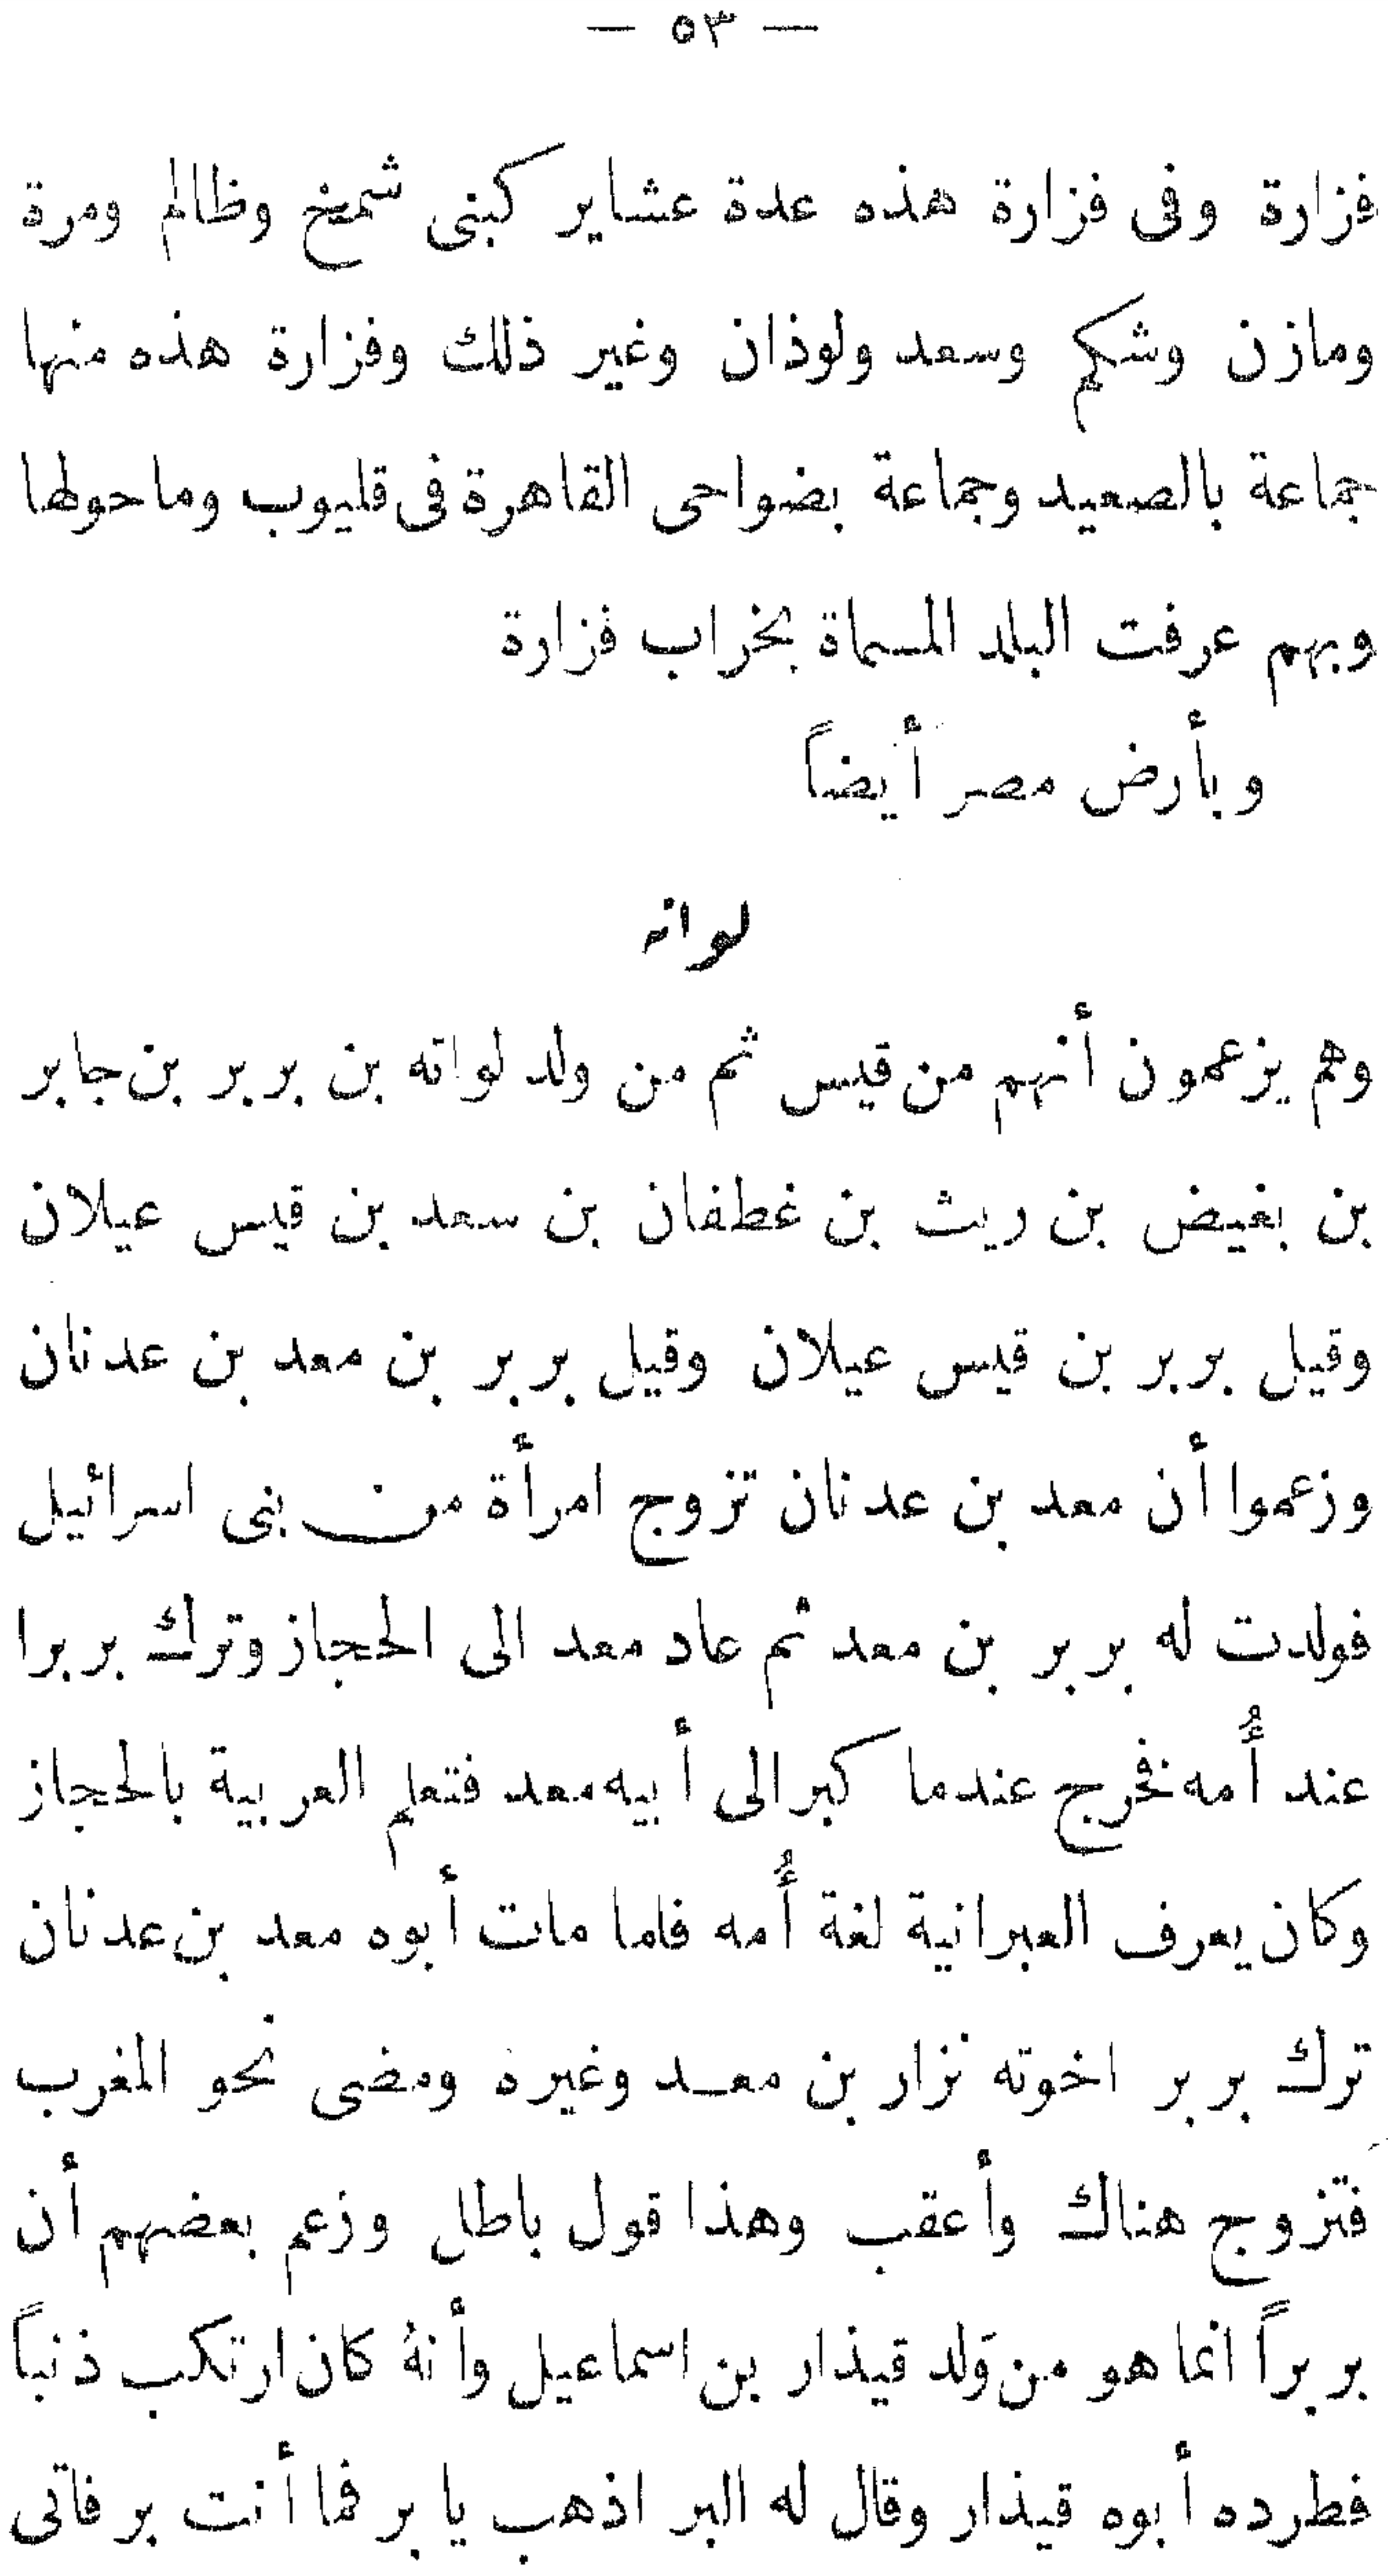 — ٥٣ —
فزارة وفى فزارة هذه عدة عشاير كبنى شمخ وظالم ومرة
ومازن وشكم وسعد ولوذان وغير ذلك وفزارة هذه منها
جماعة بالصعيد وجماعة بضواحى القاهرة فى قليوب وماحولها
وبهم عرفت البلد المسماة بخراب فزارة
وبأرض مصر أيضاً
لواته
وهم يزعمون أنهم من قيس ثم من ولد لواته بن بربر بن جابر
بن بغيض بن ريث بن غطفان بن سعد بن قيس عيلان
وقيل بربر بن قيس عيلان وقيل بربر بن معد بن عدنان
وزعموا أن معد بن عدنان تزوج امرأة من بنى اسرائيل
فولدت له بربر بن معد ثم عاد معد الى الحجاز وترك بربرا
عند أُمه فخرج عندما كبر الى أبيه معد فتعلم العربية بالحجاز
وكان يعرف العبرانية لغة أُمه فاما مات أبوه معد بن عدنان
ترك بربر اخوته نزار بن معد وغيره ومضى نحو المغرب
فتزوج هناك وأعقب وهذا قول باطل وزعم بعضهم أن
بربراً انما هو من وَلد قيذار بن اسماعيل وأنهُ كان ارتكب ذنباً
فطرده أبوه قيذار وقال له البر اذهب يا بر فما أنت بر فاتى